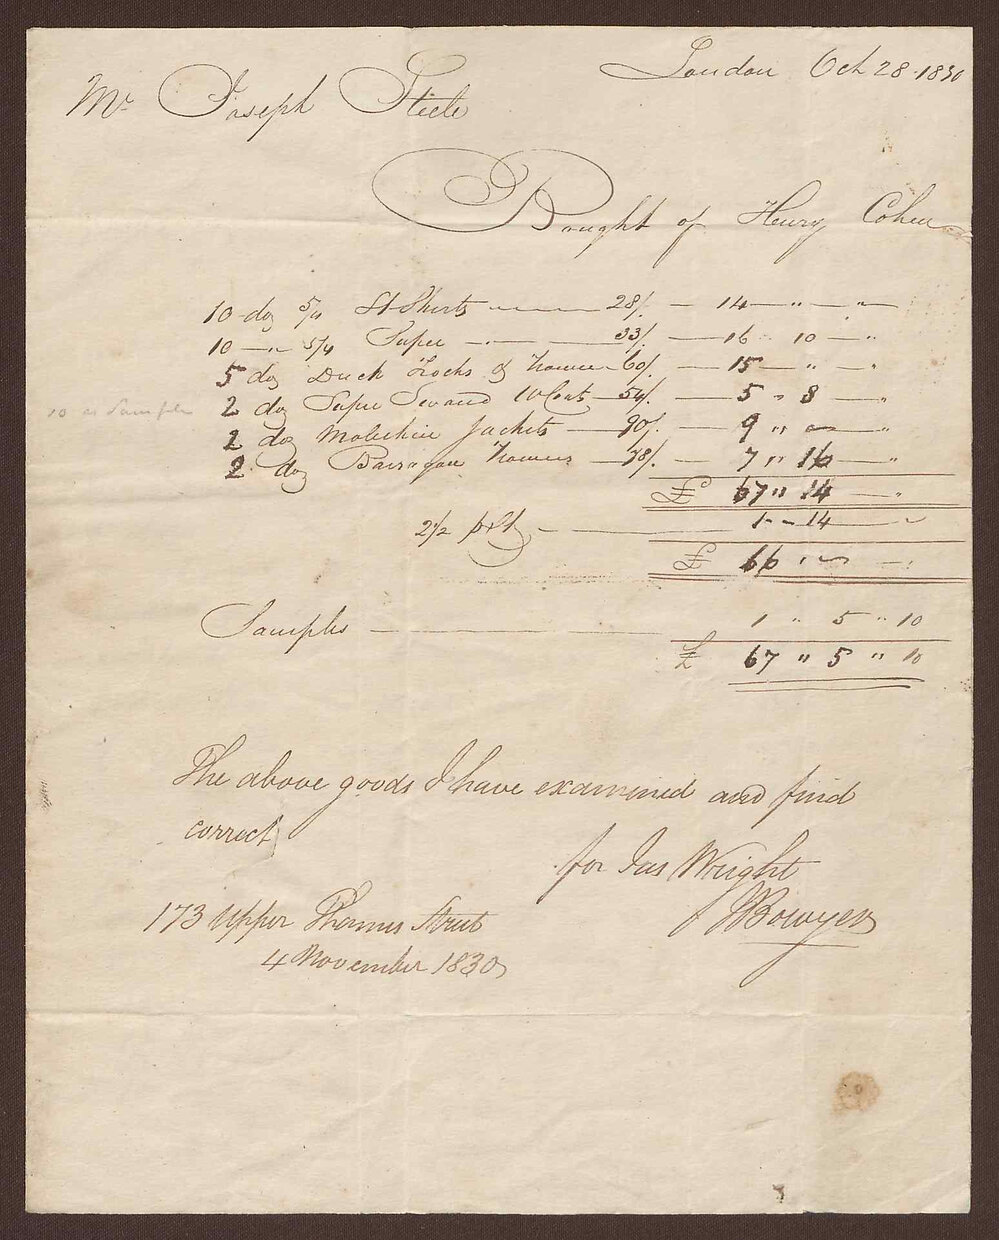 London Oct 28 - 1830
Mr Joseph Steele
Bought of Henry Cohen
10 doz 5/4 St Shirts 28/. — 14 — " — " —
10 — " 5/4 Super — " — 33/. — 16 — 10 — " 
5 doz Duck Frocks & Trowsers 60/. — 15 — " — "
10 as Sample
2 doz Supr 54/. — 5 " 8 — "
2 doz Moleskin Jackets — 90/. — 9 " — "
2 doz Barragon Trowsers — 78/. — 7 " 16 — "
£ 67 " 14 — "
2 1/2 pr Ct — 1 - - 14 — "
£ 66 " — "
Samples — 1 " 5 " 10
£ 67 " 5 " 10
The above goods I have examined and find
correct
for Jas Wright
J Bowyer
173 Upper Thames Street
4 November 1830